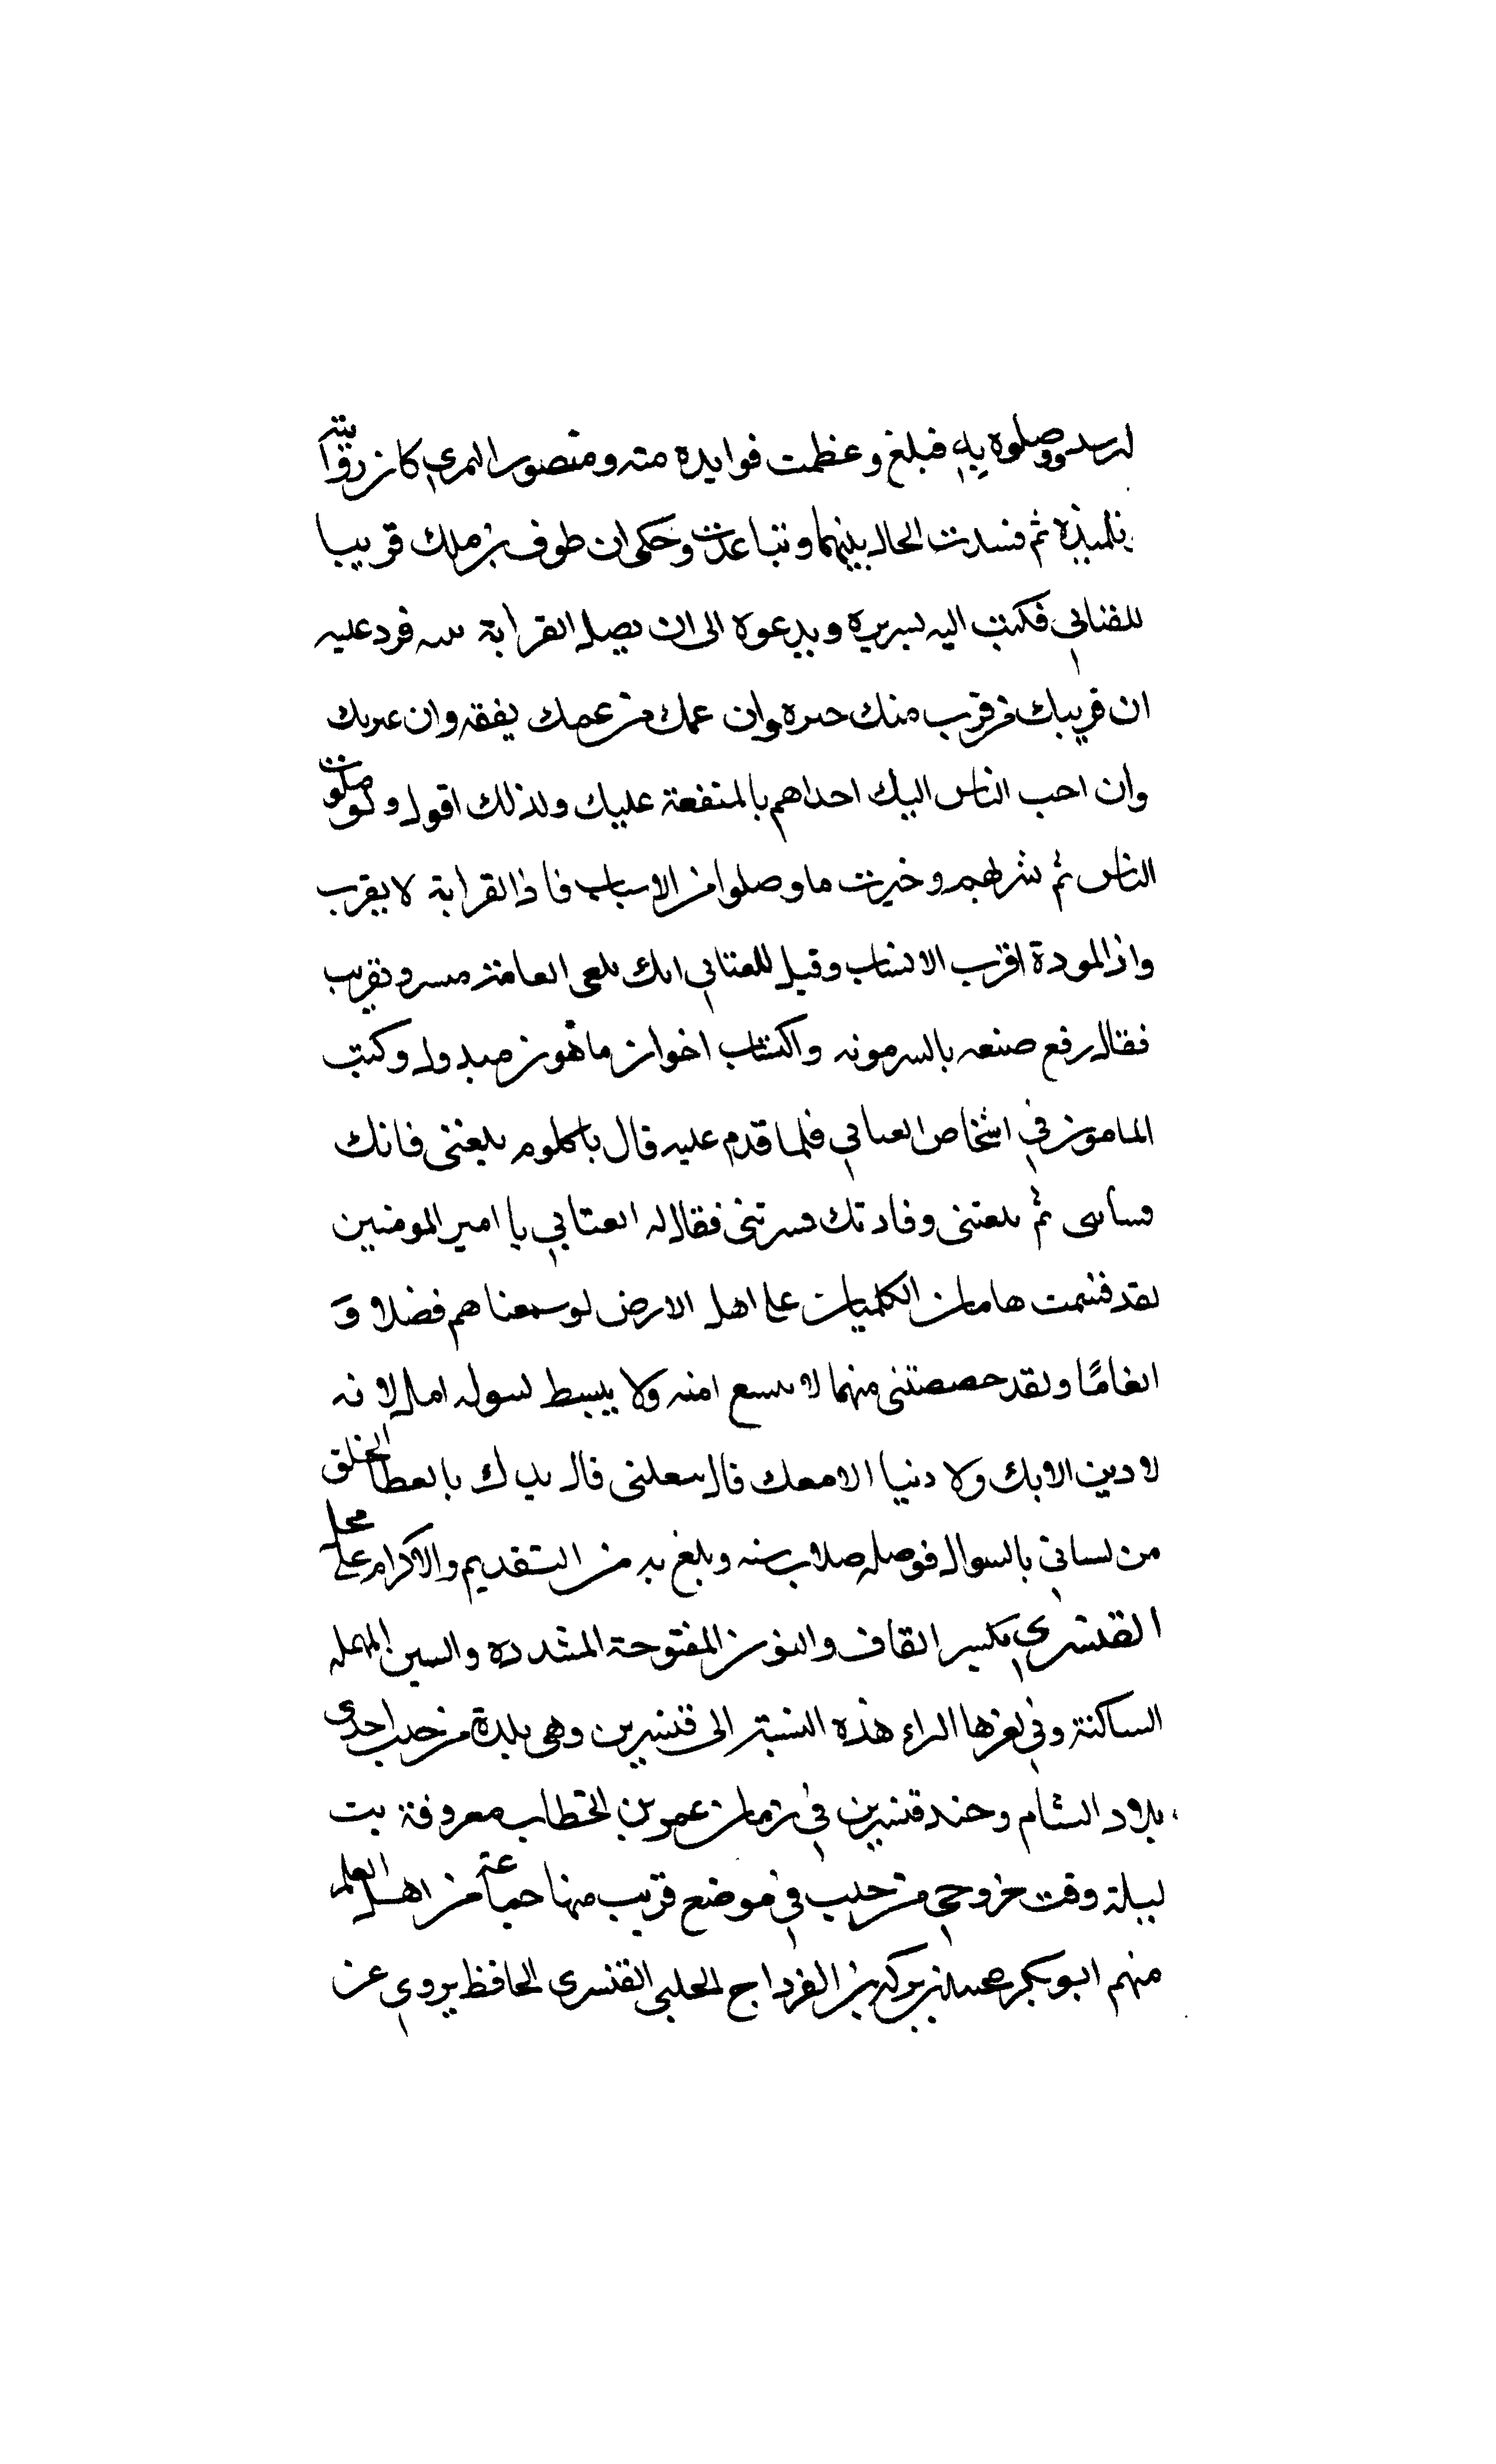 لرسد ووصلوه به فبلغ وعظمت فوايده منه ومنصور النمري كان راويته
وتلميذه ثم فسدت الحال بينهما وتباعدت وحكى ان طوف بن ملك قريبا
للفتابي فكتب اليه يدعوه الى ان يصل القرابة فرد عليه
ان قريبك من قرب منك خيره وان عمك من عمك يفقه وان عربك
وان احب الناس اليك احداهم بالمنفعة عليك ولذلك اقول ولو صلوت
الناس ثم شرلهم وخيرت ما وصلوا من الاسباب فاذا القرابة لا يقرب
واذا المودة اقرب الانساب وقيل للعتابي انك تلقى العامة ببسر وتقريب
فقال رفع صنعه بالسر مونه واكتساب اخوان ما هون مبدول وكتب
المامون في اشخاص العتابي فلما قدم عليه قال يا كلوم بلغني فانك
فساني ثم بلغتني وفادتك فسرتني فقال له العتابي يا امير المومنين
لقد قسمت هاتان الكلمتان على اهل الارض لوسعناهم فضلا و
انعامًا ولقد خصصتني منهما لا يتسع امنه ولا يبسط لسوله امل لانه
لا دين الا بك ولا دنيا الا معك قال سعلني قال يدك بالعطا الخلق
من لساني بالسوال فوصله صلات سنه وبلغ به من التقديم والاكرام على محل
القنسري بكسر القاف والنون المفتوحة المشدده والسين المهمله
الساكنة وفي اخرها الراء هذه النسبة الى قنسرين وهي بلدة من حلب احدى
بلاد الشام وجند قنسرين في زمان عمر بن الخطاب معروفة بت
ليلة وقت خروجي من حلب في موضع قريب منها جماعة من اهل العلم
منهم ابو بكر محمد بن بركة بن الفرداج الحلبي القنسري الحافظ يروي عن